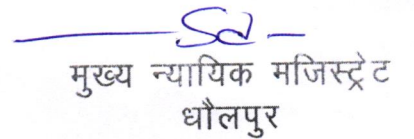 Sd
मुख्य न्यायिक मजिस्ट्रेट
धौलपुर